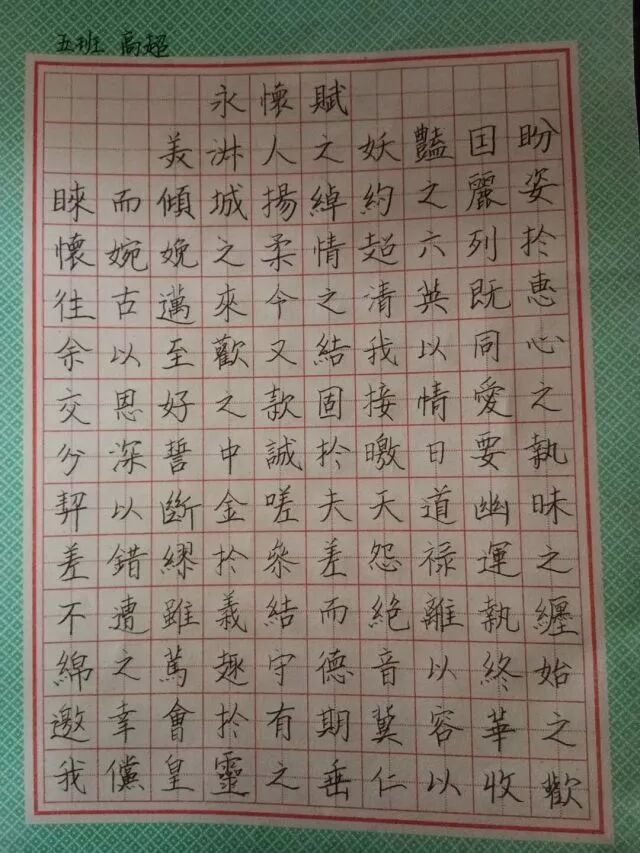 五班 高超
永懷賦
美淑人之妖豔因盼
睞而傾城揚綽約之麗姿
懷婉娩之柔情超六列於
往古邁來今之清英既惠
余以至歡又結我以同心
交恩好之款固接情愛之
分深誓中誠於曒日要執
契以斷金嗟夫天道幽昧
差錯繆於參差怨祿運之
不遭雖義結而絕離執纏
綿之篤趣守德音以終始
邀幸會於有期冀容華之
我儻皇靈之垂仁以收歡